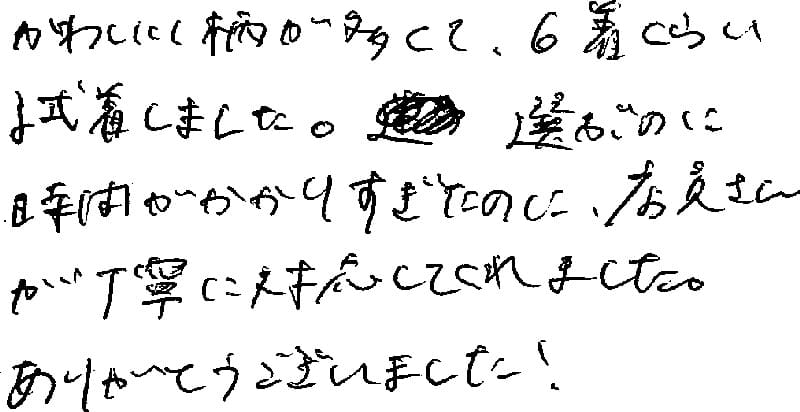 かわいい柄が多くて、6着くらい
試着しました。選ぶのに
時間がかかりすぎたのに、店員さん
が丁寧に対応してくれました。
ありがとうございました!